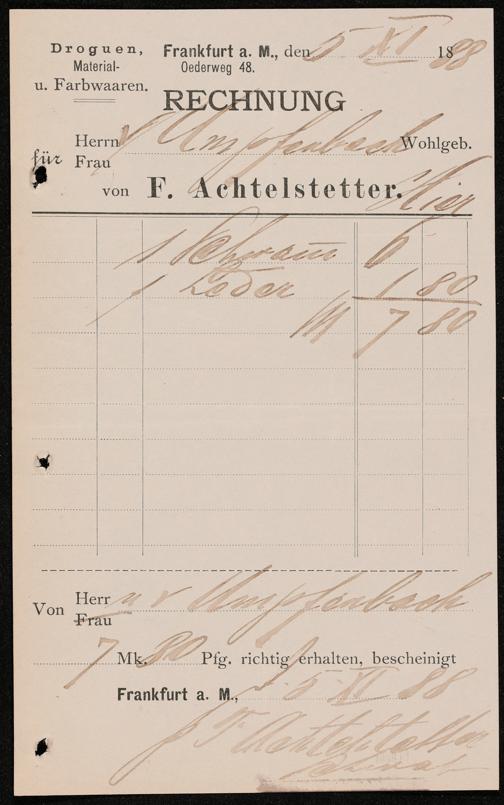 Droguen,
Material-
u. Farbwaaren.
Frankfurt a. M., den 5 XI 1888
Oederweg 48.
RECHNUNG
für Herrn v Umpfenbach Wohlgeb.
Frau
von F. Achtelstetter. Hier
1 Schwam 6
1 Leder 1 80
M 7 80
Von Herr v Umpfenbach
Frau
7 Mk. 80 Pfg. richtig erhalten, bescheinigt
Frankfurt a. M., 5 XI 88
F Achtelstetter